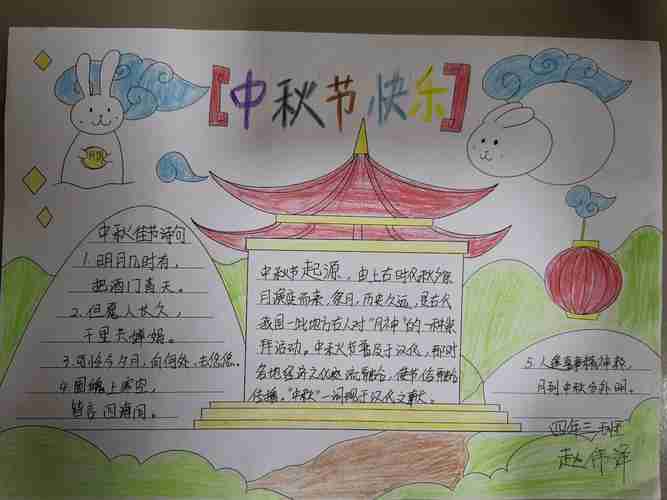 【中秋节快乐】
中秋佳节诗句
1.明月几时有,
把酒门青天。
2.但愿人长久,
千里共婵娟。
3.可怜今夕月,向何处、去悠悠。
4.圆魄上寒空,
皆言四海同。
中秋节起源,由上古时代秋夕祭
月演变而来,祭月,历史久远,是古代
我国一些地方古人对"月神"的一种崇
拜活动。中秋节普及于汉代,那时
各地经济文化交流融合,使节俗融合
传播。"中秋"一词现于汉代文献。
5.人逢喜事精神爽,
月到中秋分外明。
四年三班
赵伟泽